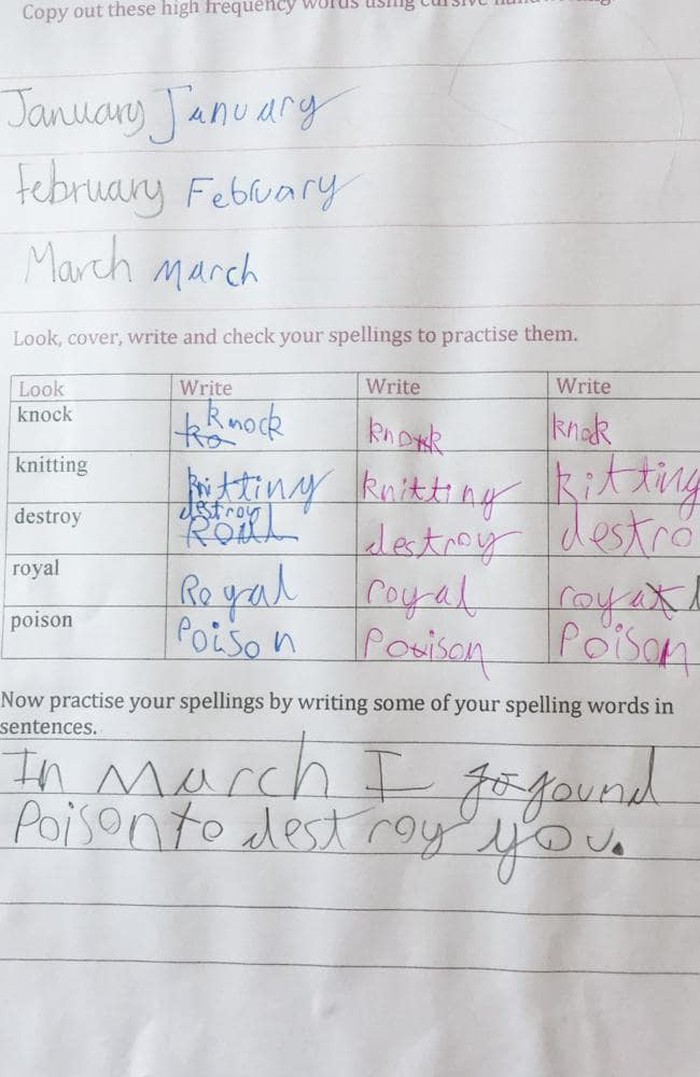 Copy out these high frequency words using cursive handwriting.
January January
February February
March March
Look, cover, write and check your spellings to practise them.
Look Write Write Write
knock knock knock knok
knitting knittiny knitting kitting
destroy destroy destroy destro
royal Royal royal royal
poison Poison Poison Poison
Now practise your spellings by writing some of your spelling words in
sentences.
In March I found
Poison to destroy you.